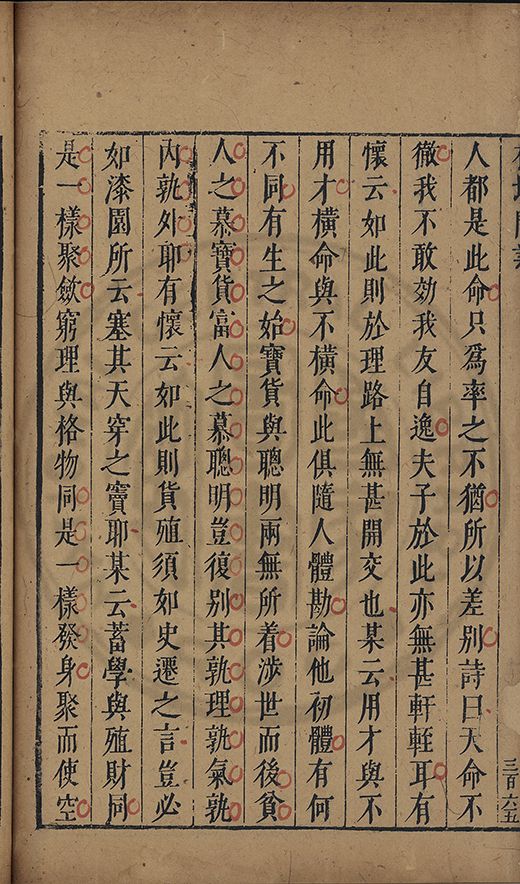 三百六五
人都是此命只為率之不猶所以差別詩曰天命不
徹我不敢効我友自逸夫子於此亦無甚軒輊耳有
懷云如此則於理路上無甚開交也某云用才與不
用才橫命與不橫命此俱隨人體勘論他初體有何
不同有生之始寶貨與聰明兩無所着涉世而後貧
人之慕寶貨富人之慕聰明豈復別其孰理孰氣孰
內孰外耶有懷云如此則貨殖須如史遷之言豈必
如漆園所云塞其天穿之竇耶某云蓄學與殖財同
是一樣聚斂窮理與格物同是一樣發身聚而使空